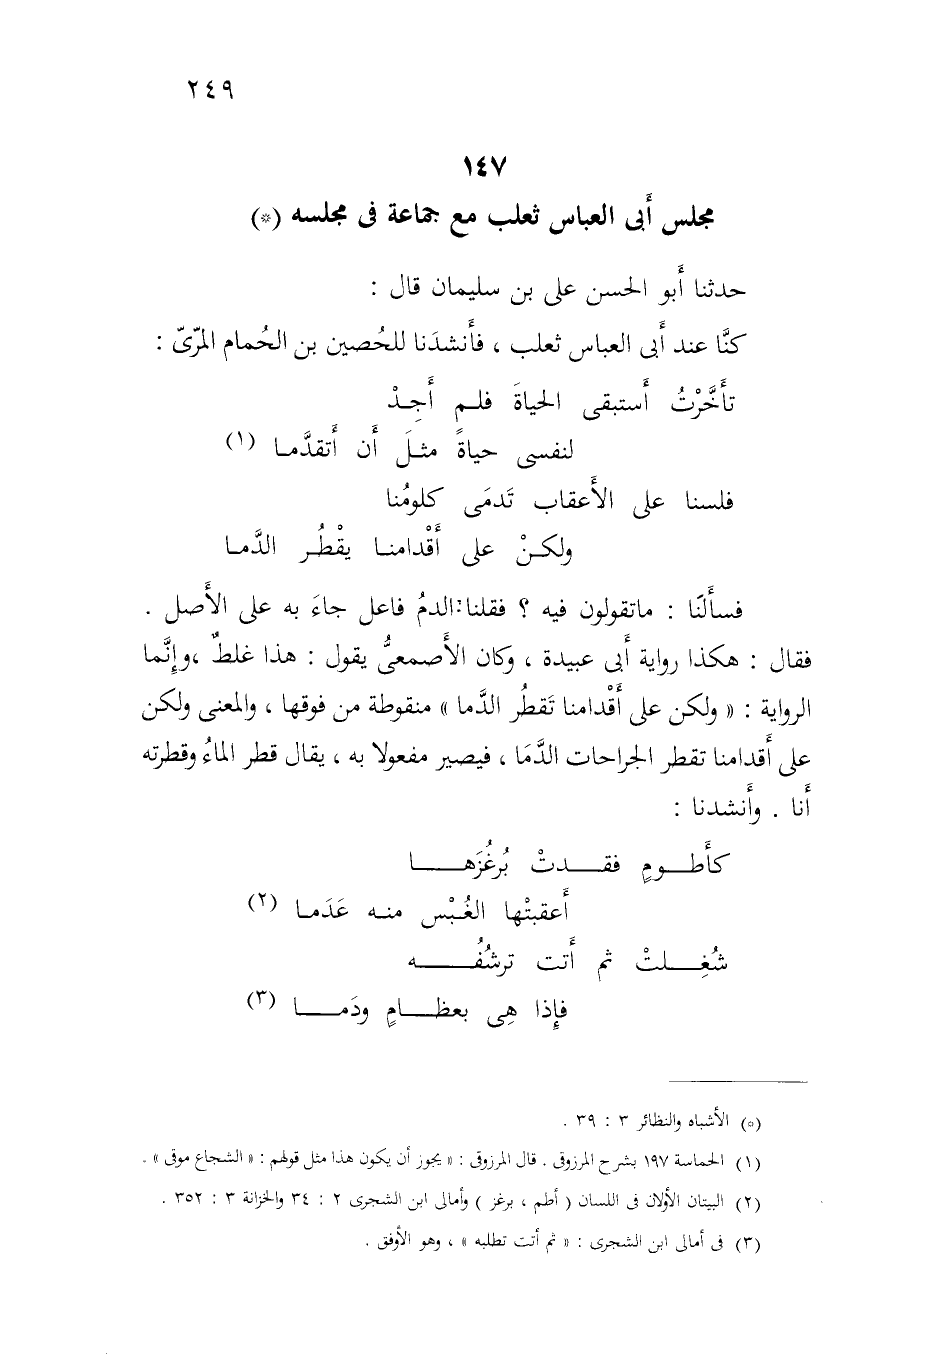 ٢٤٩
١٤٧
مجلس أَبى العباس ثعلب مع جماعة فى مجلسه (*)
حدثنا أَبو الحسن على بن سليمان قال :
كنَّا عند أَبى العباس ثعلب ، فأَنشدَنا للحُصين بن الحُمام المرّىّ :
تأَخَّرْتُ أَستبقى الحياةَ فلـم أَجِـدْ
لنفسى حياةً مثـلَ أَن أَتقدَّمـا (١)
فلسنا على الأَعقاب تَدمَى كلومُنا
ولكـنْ على أَقْدامنـا يقْطُـر الدَّمـا
فسأَلنَا : ماتقولون فيه ؟ فقلنا : الدمُ فاعل جاءَ به على الأَصل .
فقال : هكذا رواية أَبى عبيدة ، وكان الأَصمعىُّ يقول : هذا غلطٌ ، وإِنَّما
الرواية : « ولكن على أَقْدامنا تَقطُر الدَّما » منقوطة من فوقها ، والمعنى ولكن
على أَقدامنا تقطر الجراحات الدَّمَا ، فيصير مفعولا به ، يقال قطر الماءُ وقطرته
أَنا . وأَنشدنا :
كأَطـومٍ فقـدتْ بُرغُزَهـا
أَعقبتْها الغُبْس منـه عَدَمـا (٢)
شُغِـلتْ ثم أَتت ترشُفُـه
فإِذا هِى بعظـامٍ ودَمـا (٣)
(*) الأشباه والنظائر ٣ : ٣٩ .
(١) الحماسة ١٩٧ بشرح المرزوقى . قال المرزوقى : « يجوز أن يكون هذا مثل قولهم : « الشجاع موقى » .
(٢) البيتان الأولان فى اللسان ( أطم ، برغز ) وأمالى ابن الشجرى ٢ : ٣٤ والخزانة ٣ : ٣٥٢ .
(٣) فى أمالى ابن الشجرى : « ثم أتت تطلبه » ، وهو الأوفق .